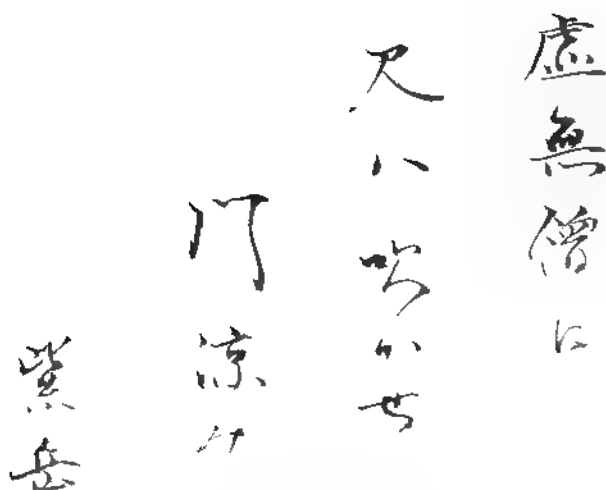 虚無僧に
尺八吹かせ
門涼み
紫岳